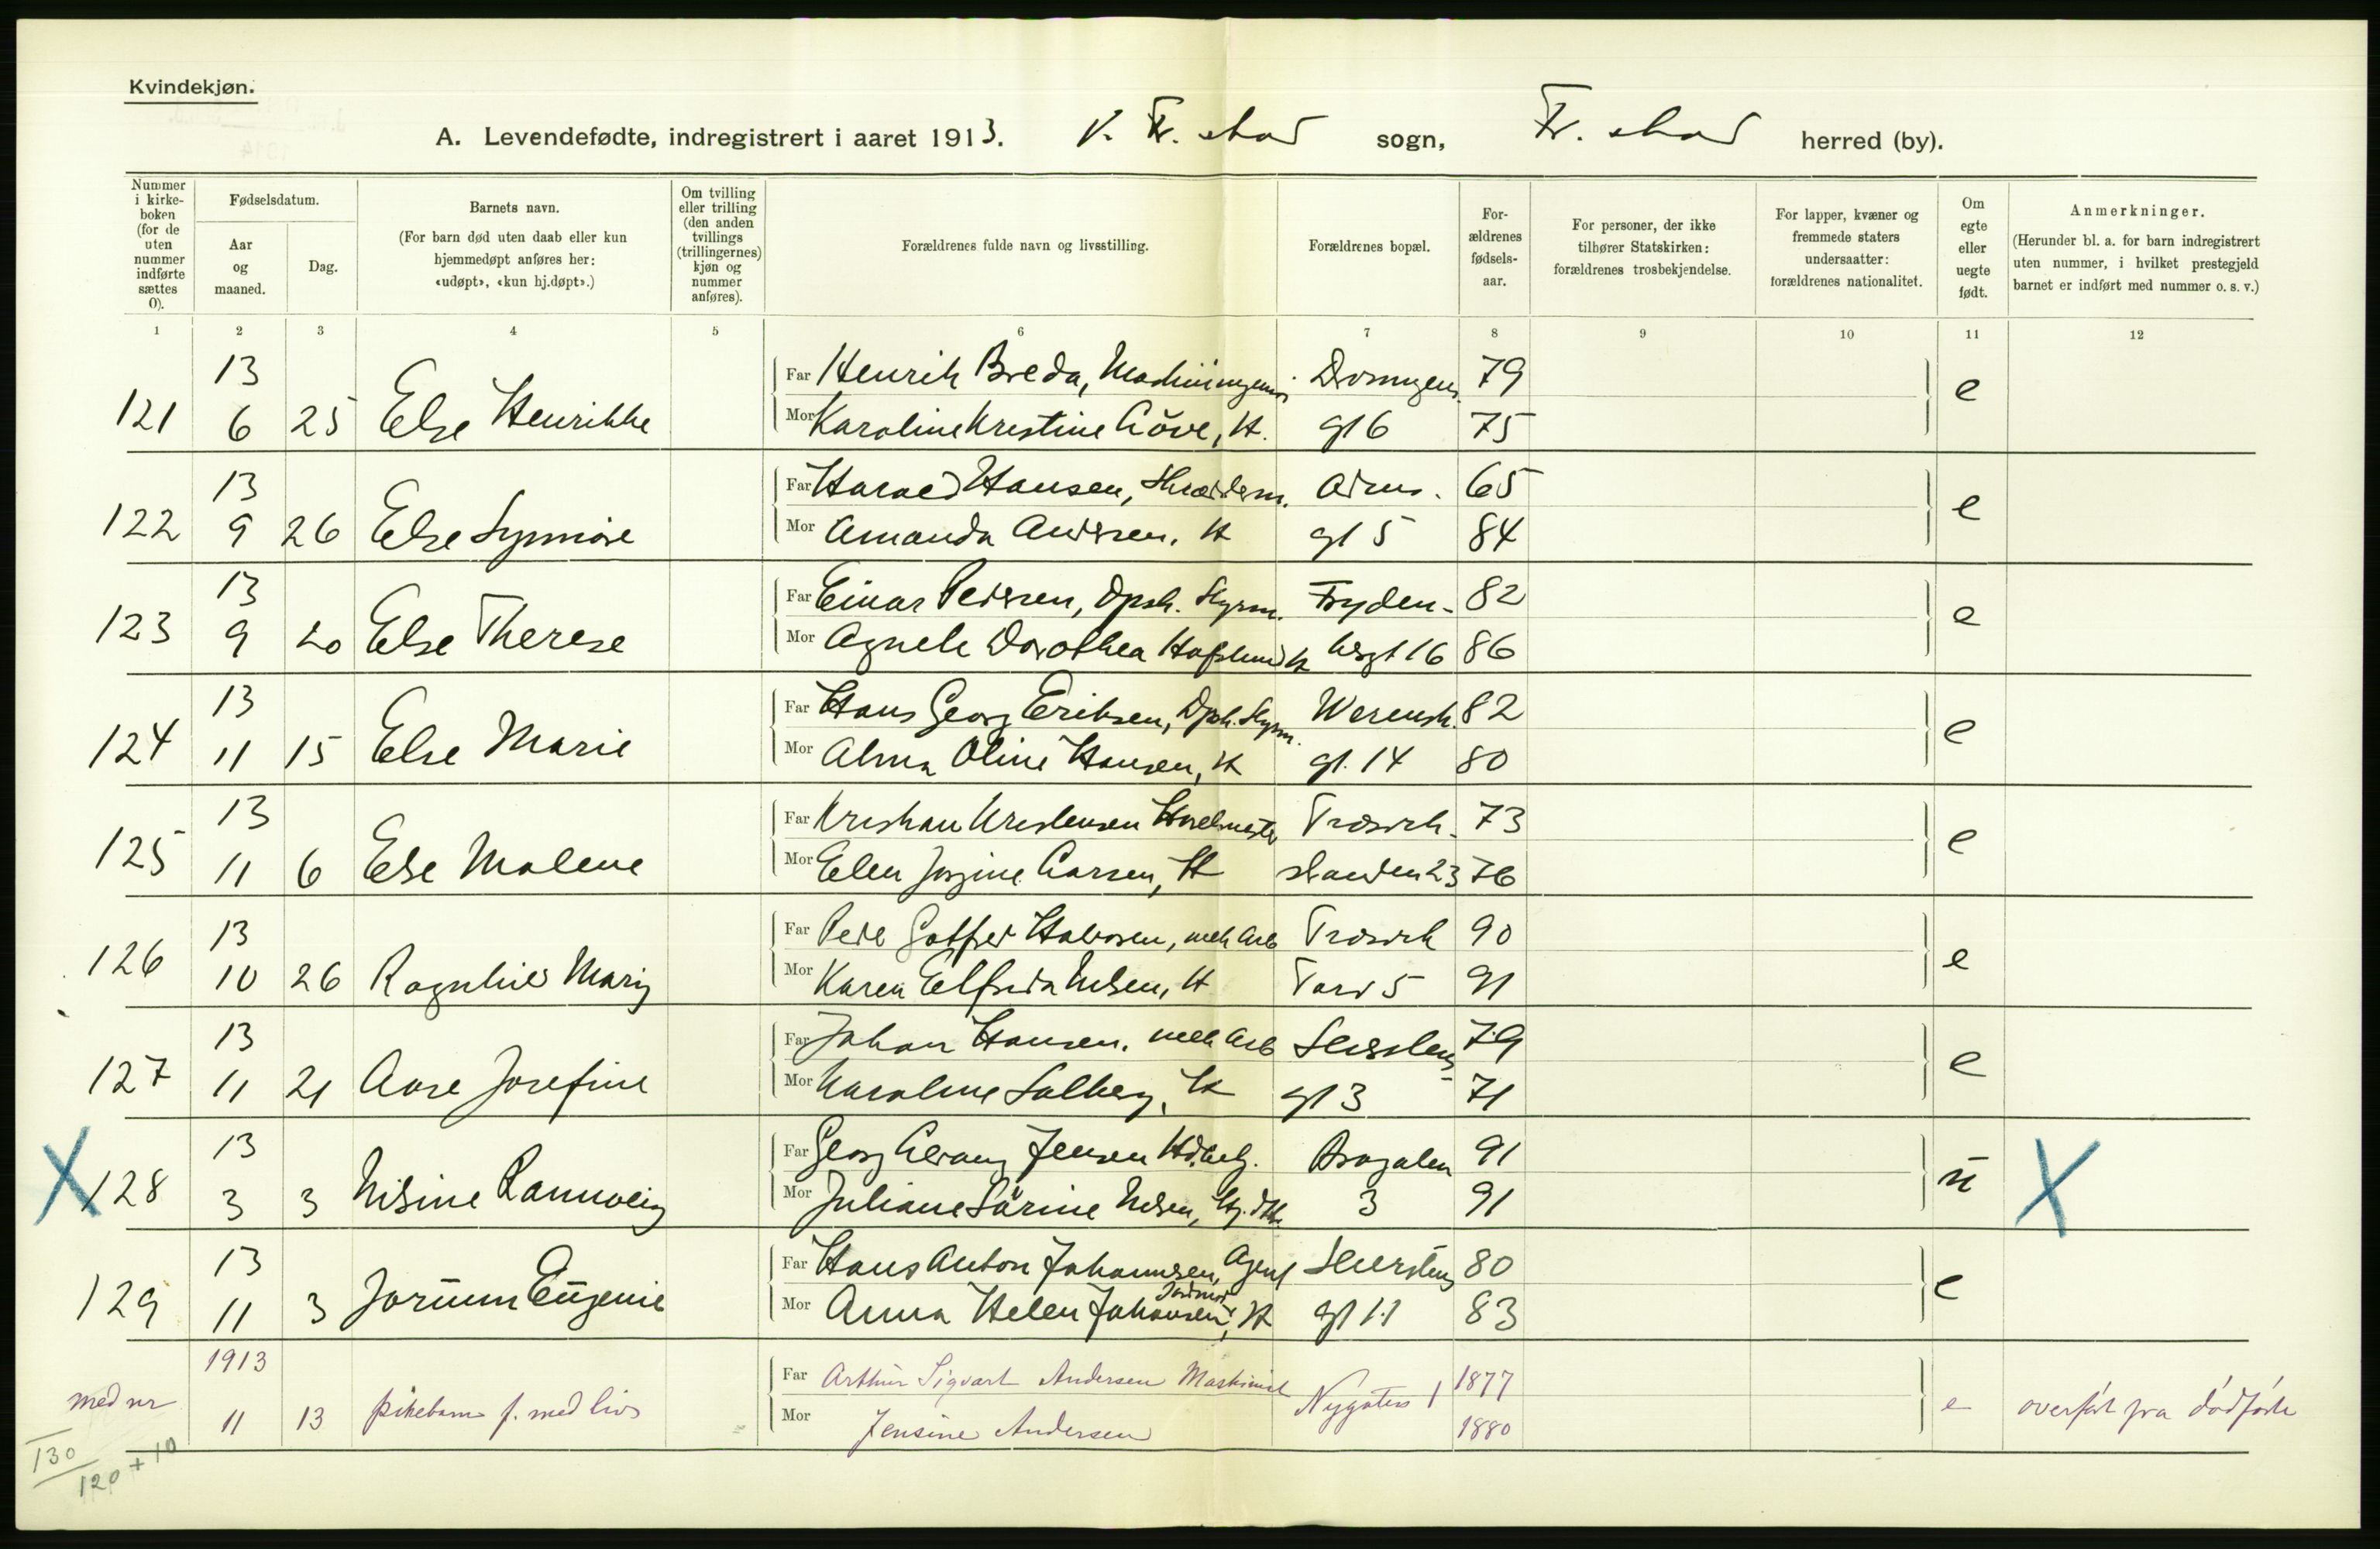 Kvindekjøn.
A. Levendefødte, indregistrert i aaret 1913. V. Fr. stad sogn, Fr. stad herred (by).
Nummer i kirkeboken (for de uten nummer indførte sættes 0).
Fødselsdatum.
Aar og maaned.
Dag.
Barnets navn.
(For barn død uten daab eller kun hjemmedøpt anføres her: «udøpt», «kun hj.døpt».)
Om tvilling eller trilling (den anden tvillings (trillingernes) kjøn og nummer anføres).
Forældrenes fulde navn og livsstilling.
Forældrenes bopæl.
Forældrenes fødselsaar.
For personer, der ikke tilhører Statskirken: forældrenes trosbekjendelse.
For lapper, kvæner og fremmede staters undersaatter: forældrenes nationalitet.
Om egte eller uegte født.
Anmerkninger.
(Herunder bl. a. for barn indregistrert uten nummer, i hvilket prestegjeld barnet er indført med nummer o. s. v.)
1 2 3 4 5 6 7 8 9 10 11 12
13 Far Henrik Breda, 79
121 6 25 Else Henrikke Mor Karoline Krestine H. gt 6 75 e
13 Far Harald Hansen, 65
122 9 26 Else Synnöve Mor Amanda Andersen, H gt 5 84 e
13 Far Einar Pedersen, Dpsk. Styrm. Fryden- 82
123 9 20 Else Therese Mor Agnete Dorothea Hafslund H bergt 16 86 e
13 Far Hans Georg Eriksen, Dpsk. Styrm. Werensk. 82
124 11 15 Else Marie Mor Alma Oline Hansen, H gt. 14 80 e
13 Far Kristian Kristensen 73
125 11 6 Else Malene Mor Elen Larsen, H standen 23 76 e
13 Far Peder Halvorsen, mek Arb Trosvik 90
126 10 26 Ragnhild Marg Mor Karen Elfrida Nilsen, H Torv 5 91 e
13 Far Johan Hansen, mek Arb 79
127 11 21 Aase Josefine Mor Karoline Solberg, H gt 3 71 e
13 Far Georg Jensen 91
X 128 3 3 Nilsine Rannveig Mor Juliane Nilsen, 3 91 u X
13 Far Hans Anton Johannesen, Agent 80
129 11 3 Jorunn Eugenie Mor Anna Helen Johansen, Jordmor, H gt 11 83 e
1913 Far Arthur Sigvart Andersen Maskinist 1877
med nr 11 13 pikebarn f. med liv Mor Jensine Andersen Nygaten 1 1880 e overført fra dødføde
130
120 + 10